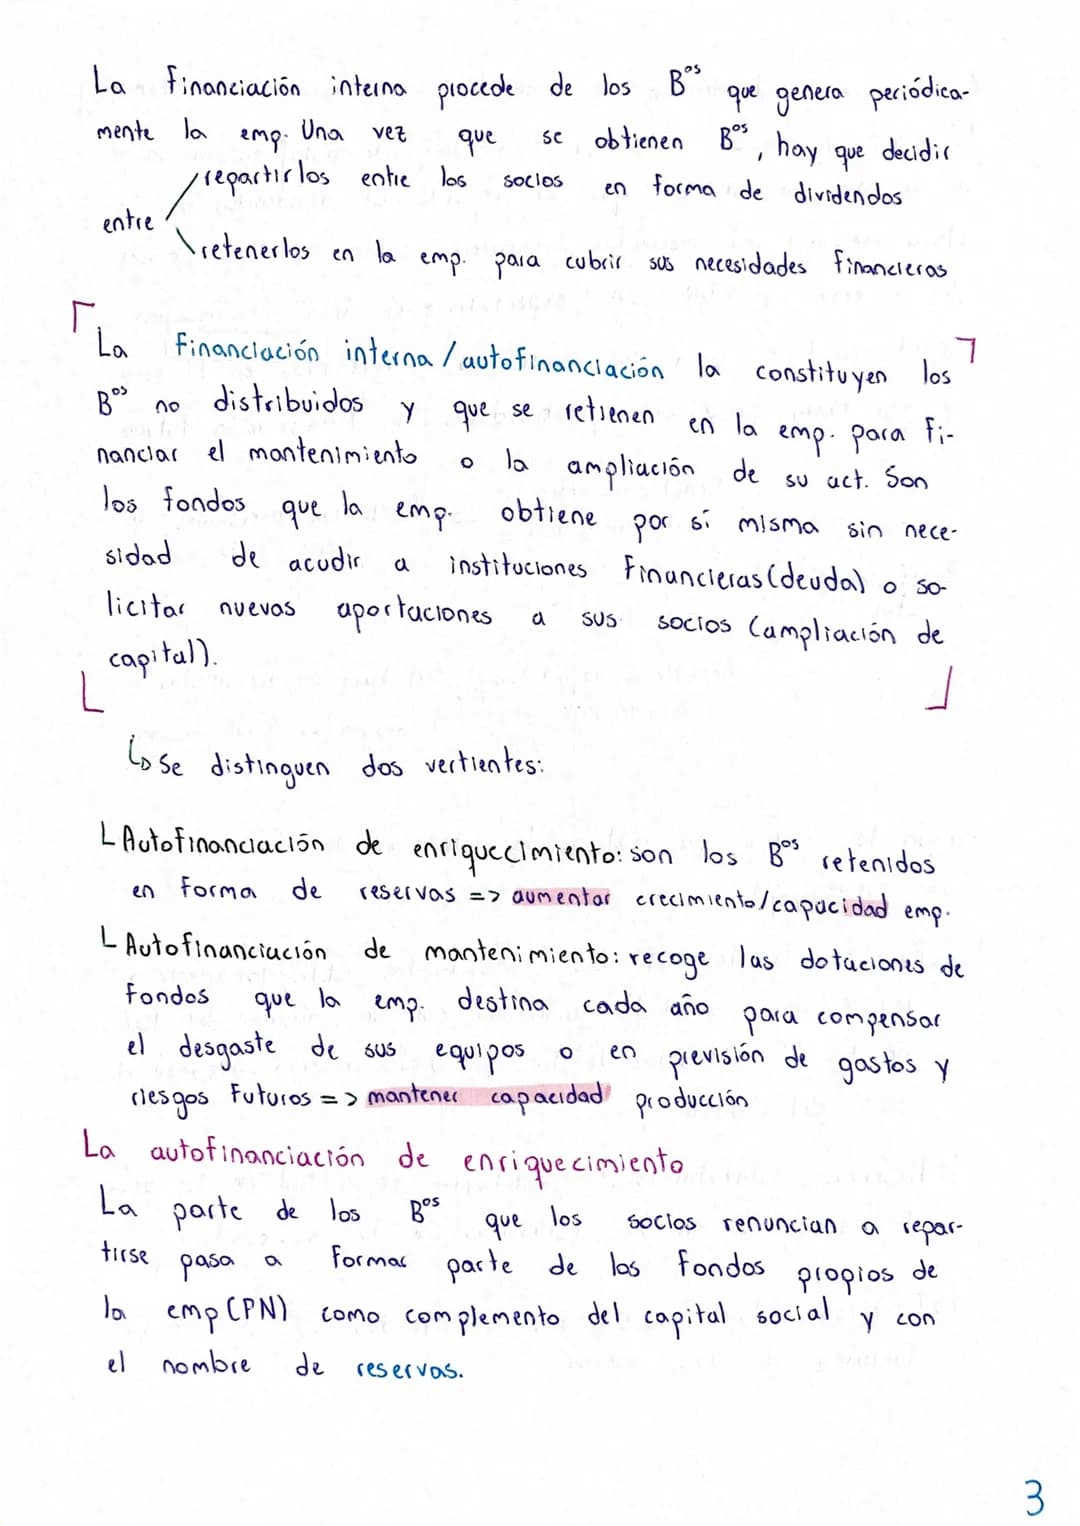 La financiación interna procede de los Bºˢ que genera periódica-
mente la emp. Una vez que se obtienen Bºˢ, hay que decidir
repartirlos entre los socios en forma de dividendos
entre
retenerlos en la emp. para cubrir sus necesidades financieras
La financiación interna/autofinanciación la constituyen los
Bºˢ no distribuidos y que se retienen en la emp. para fi-
nanciar el mantenimiento o la ampliación de su act. Son
los fondos que la emp. obtiene por sí misma sin nece-
sidad de acudir a instituciones financieras (deuda) o so-
licitar nuevas aportaciones a sus socios (ampliación de
capital).
↳ Se distinguen dos vertientes:
└ Autofinanciación de enriquecimiento: son los Bºˢ retenidos
en forma de reservas => aumentar crecimiento/capacidad emp.
└ Autofinanciación de mantenimiento: recoge las dotaciones de
fondos que la emp. destina cada año para compensar
el desgaste de sus equipos o en previsión de gastos y
riesgos futuros => mantener capacidad producción
La autofinanciación de enriquecimiento
La parte de los Bºˢ que los socios renuncian a repar-
tirse pasa a formar parte de los fondos propios de
la emp (PN) como complemento del capital social y con
el nombre de reservas.
3